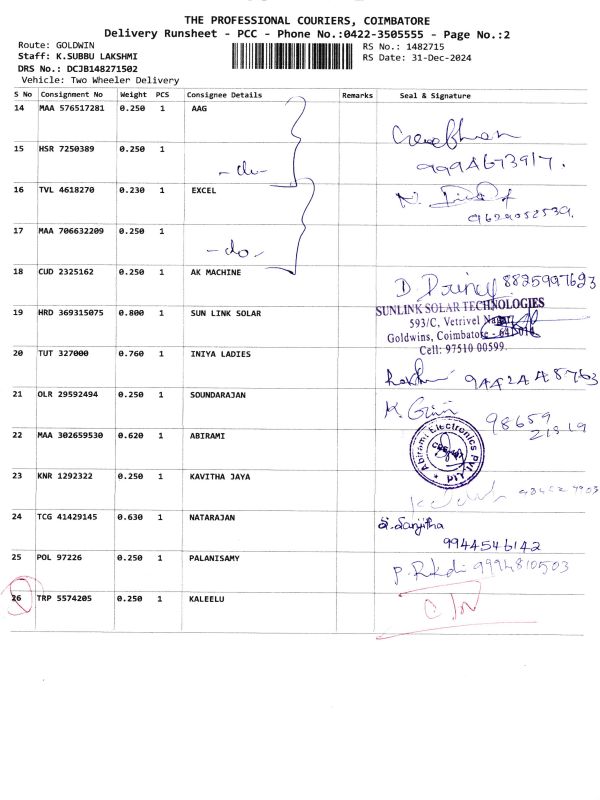 THE PROFESSIONAL COURIERS, COIMBATORE
Delivery Runsheet - PCC - Phone No.:0422-3505555 - Page No.:2
Route: GOLDWIN
RS No.: 1482715
Staff: K.SUBBU LAKSHMI
RS Date: 31-Dec-2024
DRS No.: DCJB148271502
Vehicle: Two Wheeler Delivery
S No Consignment No Weight PCS Consignee Details Remarks Seal & Signature
14 MAA 576517281 0.250 1 AAG
15 HSR 7250389 0.250 1
-do-
16 TVL 4618270 0.230 1 EXCEL
9629052539.
17 MAA 706632209 0.250 1
-do-
18 CUD 2325162 0.250 1 AK MACHINE
8825997623
19 HRD 369315075 0.800 1 SUN LINK SOLAR
SUNLINK SOLAR TECHNOLOGIES
593/C, Vetrivel Nagar,
Goldwins, Coimbatore - 641014
Cell: 97510 00599.
20 TUT 327000 0.760 1 INIYA LADIES
21 OLR 29592494 0.250 1 SOUNDARAJAN
K. Giri
22 MAA 302659530 0.620 1 ABIRAMI
Abirami Electronics Pvt. Ltd
23 KNR 1292322 0.250 1 KAVITHA JAYA
24 TCG 41429145 0.630 1 NATARAJAN
Sanjitha
9944546142
25 POL 97226 0.250 1 PALANISAMY
9994810503
26 TRP 5574205 0.250 1 KALEELU